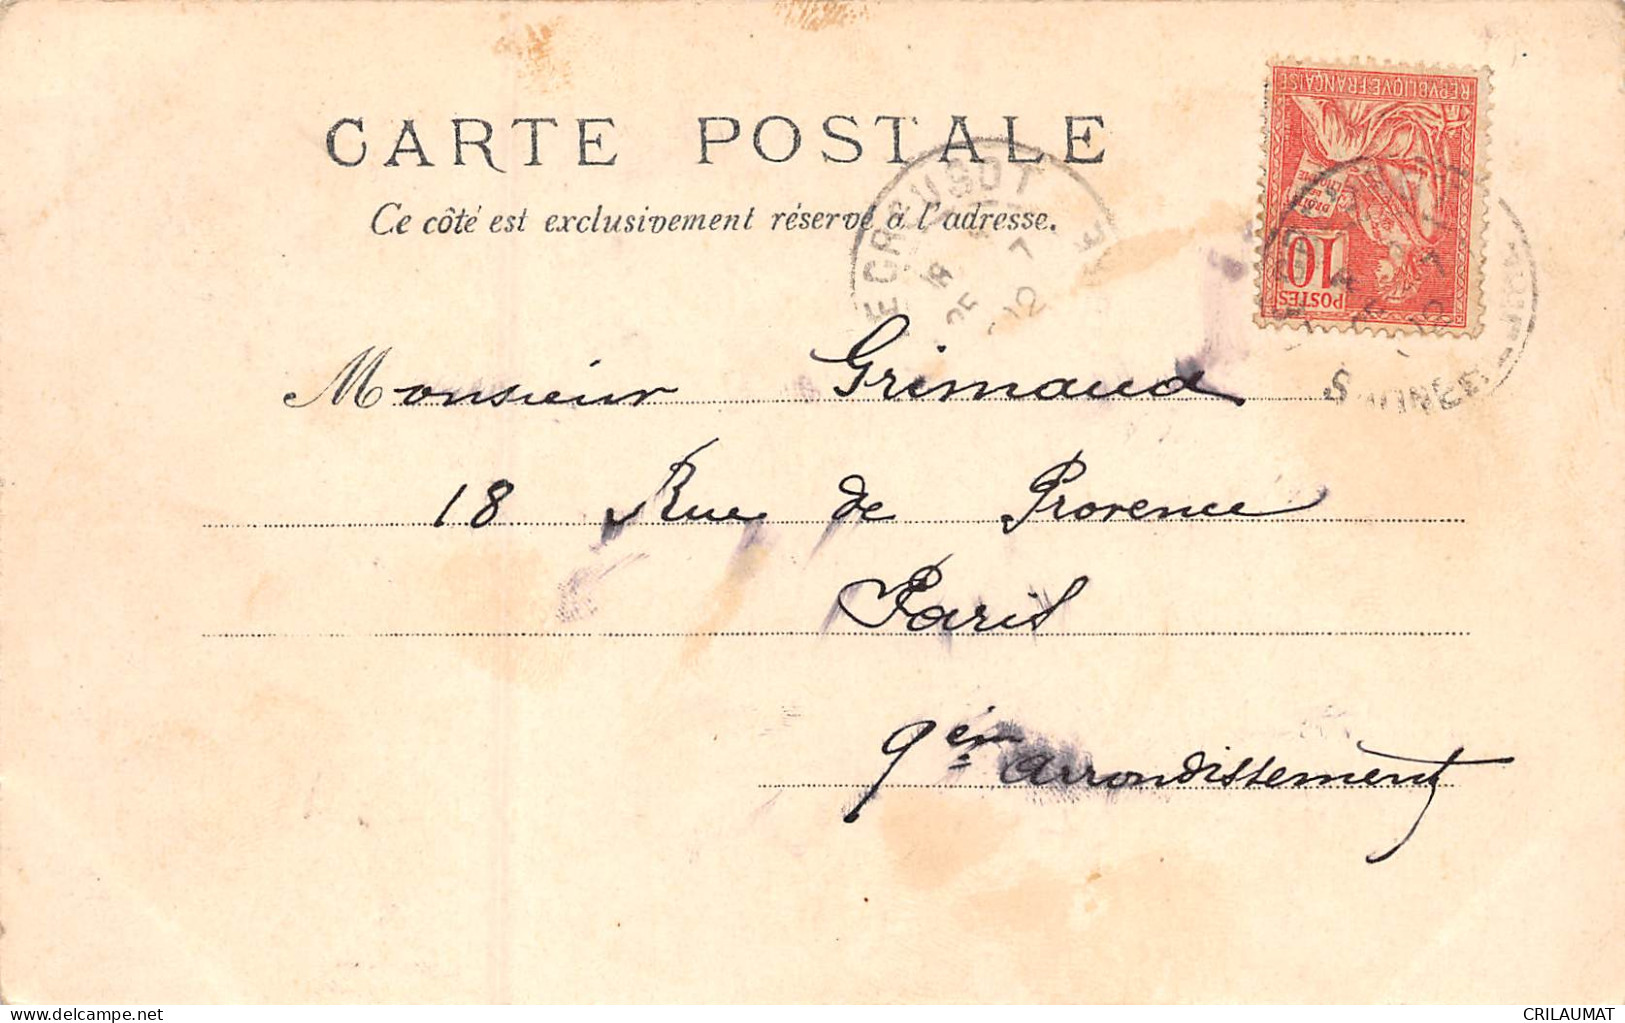 CARTE POSTALE
Ce côté est exclusivement réservé à l'adresse.
REPVBLIQVE FRANÇAISE
10
POSTES
7
02
Monsieur Grimaud
18 Rue de Provence
Paris
9èm arrondissement
delcampe.net
CRILAUMAT